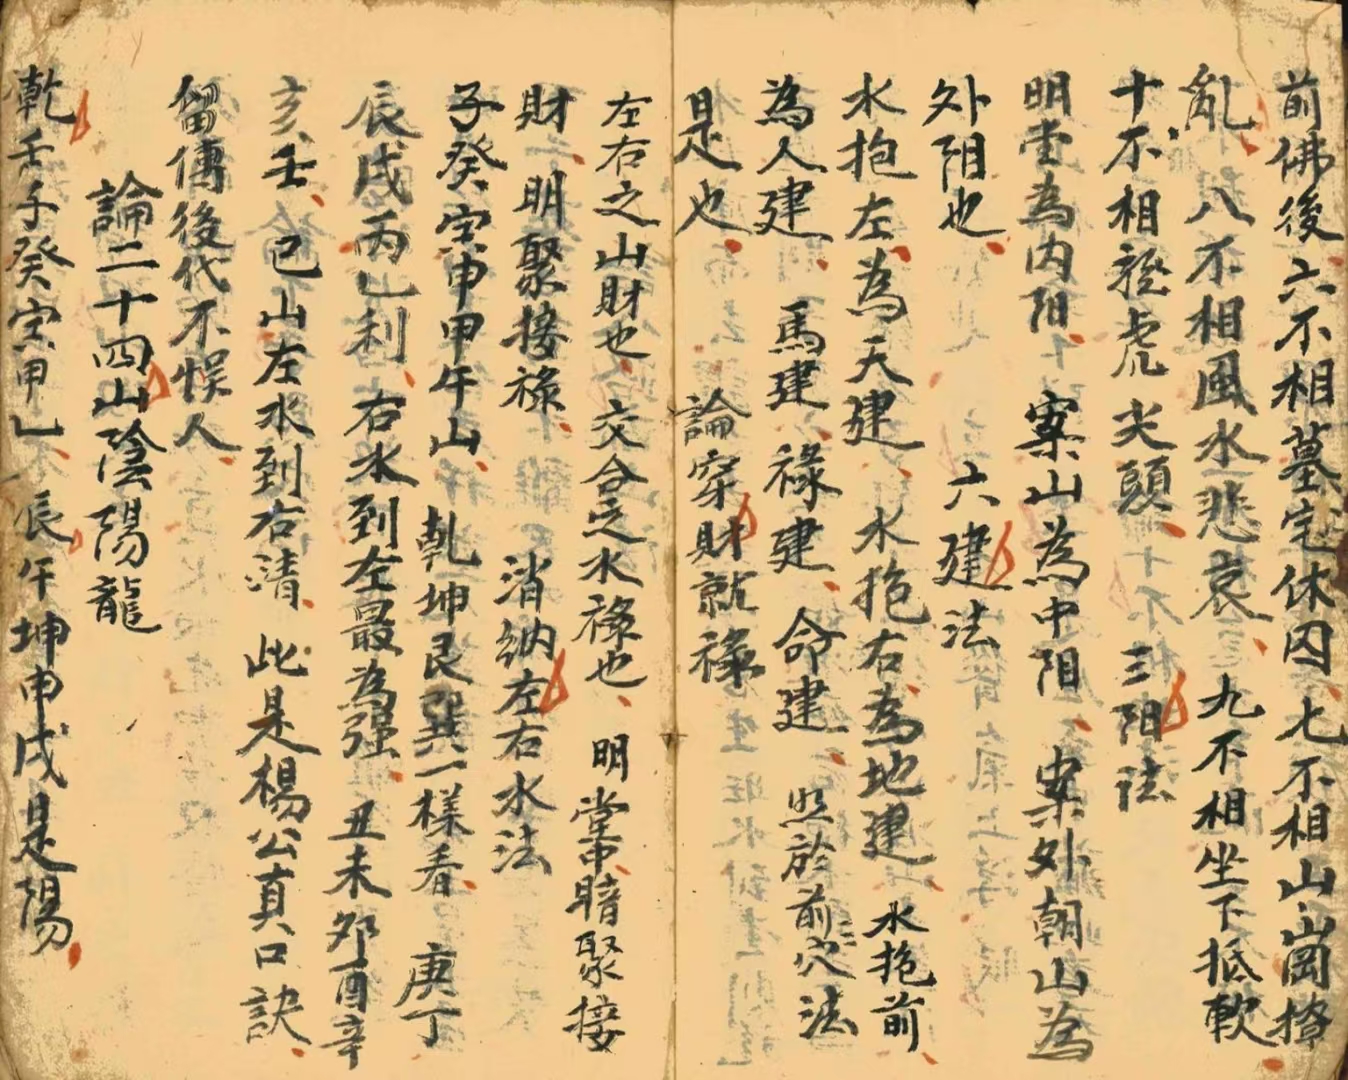 前佛後六不相墓宅休囚七不相山崗撩
亂八不相風水悲哀九不相坐下抵軟
十不相龍虎尖頭三阳法
明堂為内阳案山為中阳案外朝山為
外阳也六建法
水抱左為天建水抱右為地建水抱前
為人建馬建祿建命建照於前穴法
是也論穿財就祿
左右之山財也交合之水祿也明堂中暗聚接
財明聚接祿消納左右水法
子癸寅申甲午山乾坤艮巽一樣看庚丁
辰戌丙乙利右水到左最為强丑未卯酉辛
亥壬巳山左水到右清此是楊公真口訣
留傳後代不悮人
論二十四山陰陽龍
乾壬子癸寅甲乙辰午坤申戌是陽